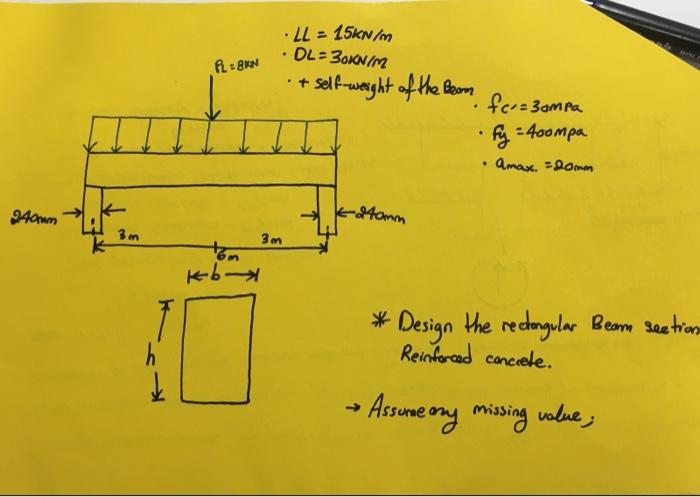 · LL = 15KN/m
· DL = 30KN/m
· + self-weight of the Beam
PL = 8KN
· fc' = 30mpa
· fy = 400mpa
· amax. = 20mm
240mm
240mm
3m
3m
6m
b
h
* Design the rectangular Beam section
Reinforced concrete.
→ Assume any missing value;